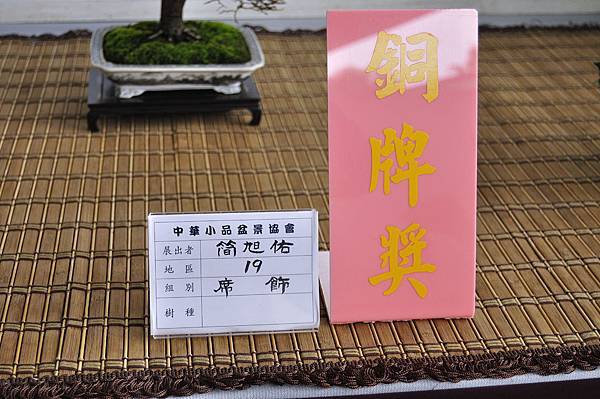 中華小品盆景協會
展出者 簡旭佑
地區 19
組別 席飾
樹種
銅牌獎